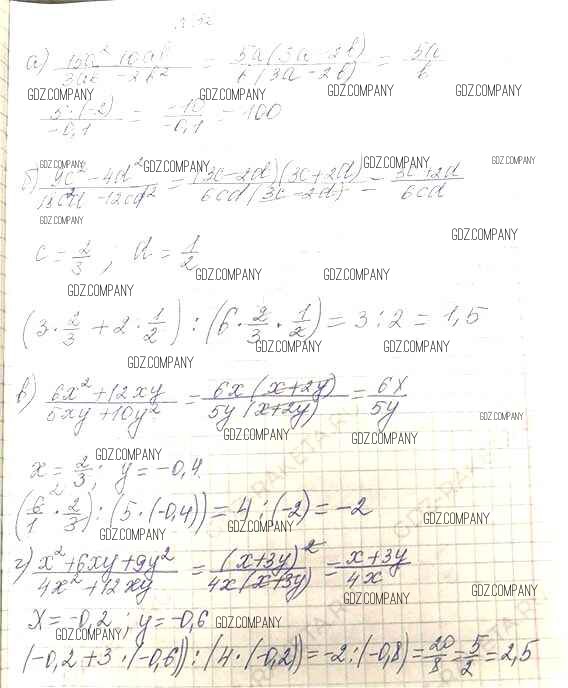 N 32
а) 15a² 10ab / 3ab - 2b² = 5a(3a - 2b) / b(3a - 2b) = 5a / b
GDZ.COMPANY GDZ.COMPANY GDZ.COMPANY GDZ.COMPANY
5·(-2) / -0,1 = -10 / -0,1 = 100
GDZ.COMPANY GDZ.COMPANY GDZ.COMPANY GDZ.COMPANY
б) 9c² - 4d² / 18c²d - 12cd² = (3c - 2d)(3c + 2d) / 6cd(3c - 2d) = 3c + 2d / 6cd
GDZ.COMPANY
GDZ.COMPANY
c = 2/3 ; d = 1/2
GDZ.COMPANY GDZ.COMPANY
GDZ.COMPANY
(3 · 2/3 + 2 · 1/2) : (6 · 2/3 · 1/2) = 3 : 2 = 1,5
GDZ.COMPANY GDZ.COMPANY
GDZ.COMPANY
в) 6x² + 12xy / 5xy + 10y² = 6x(x + 2y) / 5y(x + 2y) = 6x / 5y
GDZ.COMPANY
GDZ.COMPANY GDZ.COMPANY
GDZ.COMPANY
x = 2/3 ; y = -0,4
(6/1 · 2/3) : (5 · (-0,4)) = 4 : (-2) = -2
GDZ.COMPANY GDZ.COMPANY GDZ.COMPANY
г) x² + 6xy + 9y² / 4x² + 12xy = (x + 3y)² / 4x(x + 3y) = x + 3y / 4x
GDZ.COMPANY GDZ.COMPANY
x = -0,2 ; y = -0,6
GDZ.COMPANY GDZ.COMPANY
(-0,2 + 3 · (-0,6)) : (4 · (-0,2)) = -2 : (-0,8) = 20/8 = 5/2 = 2,5